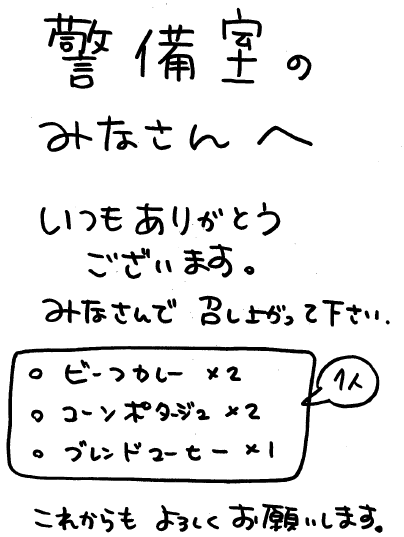 警備室の
みなさんへ
いつもありがとう
ございます。
みなさんで 召し上がって下さい.
○ ビーフカレー ×2
○ コーンポタージュ ×2
○ ブレンドコーヒー ×1
1人
これからも よろしくお願いします。